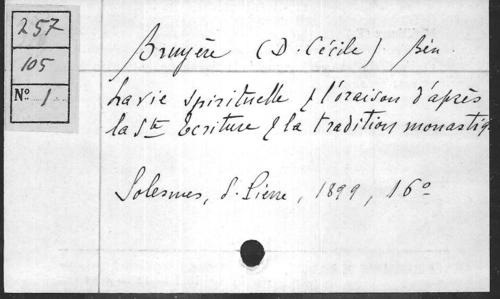 257
105
Nº 1
Bruyère (D. Cécile) Bén.
La vie spirituelle & l'oraison d'après
la Ste Ecriture & la tradition monastiq
Solesmes, S. Pierre, 1899, 16º